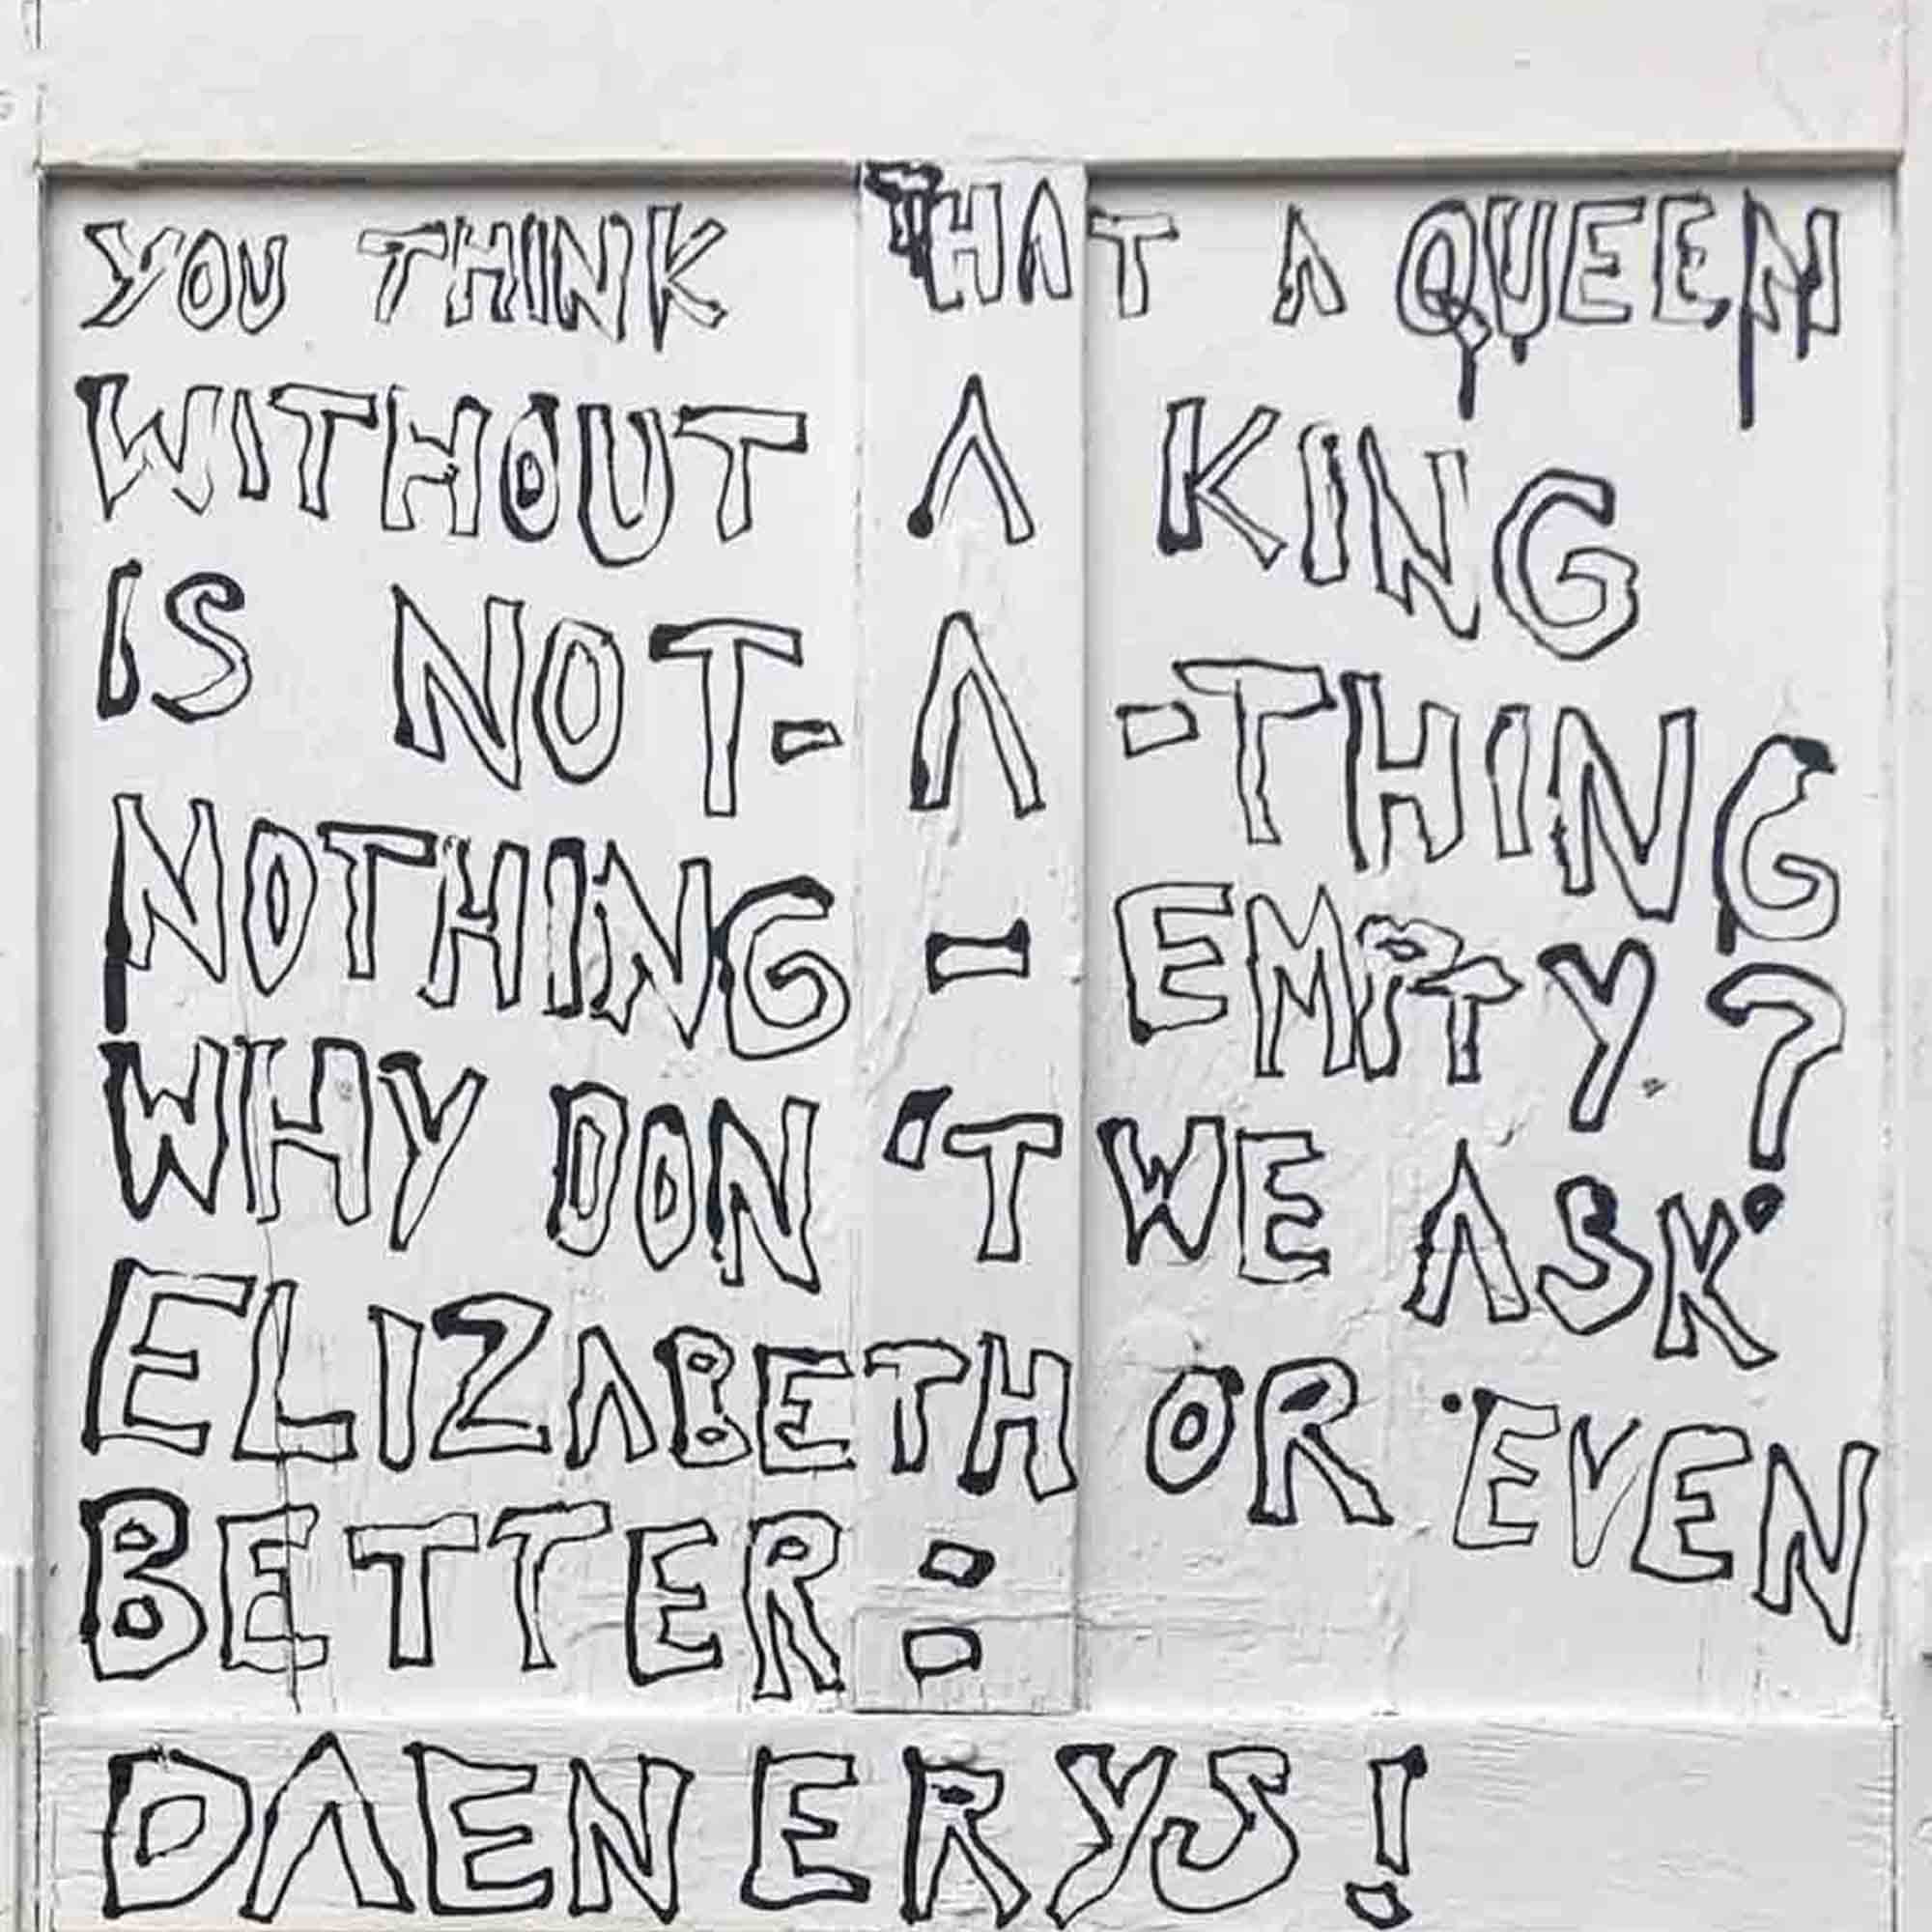 YOU THINK THAT A QUEEN
WITHOUT A KING
IS NOT-A-THING
NOTHING - EMPTY?
WHY DON'T WE ASK
ELIZABETH OR EVEN
BETTER:
DAENERYS!